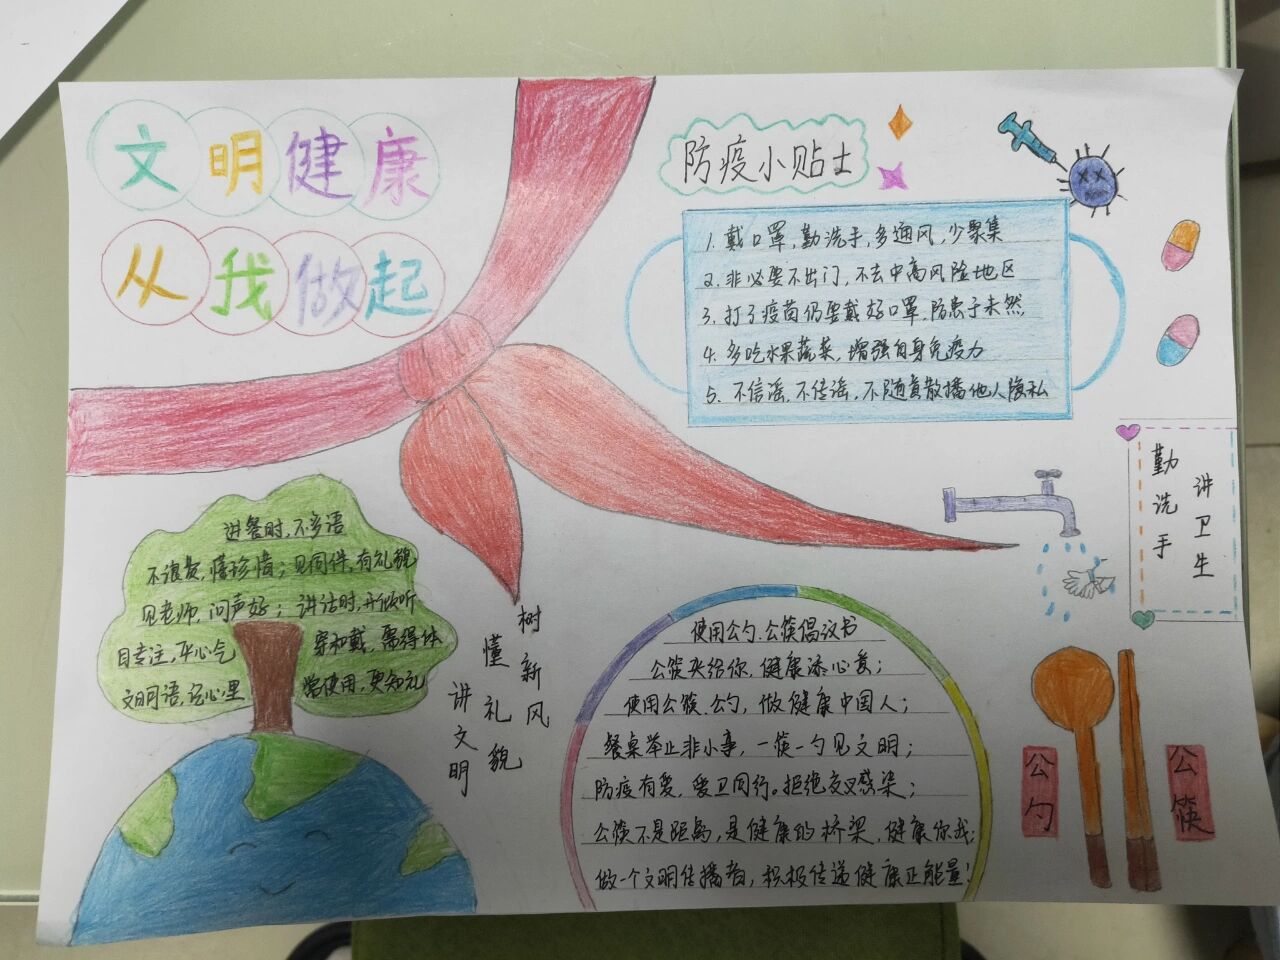 文明健康
从我做起
防疫小贴士
1. 戴口罩,勤洗手,多通风,少聚集
2. 非必要不出门,不去中高风险地区
3. 打了疫苗仍要戴好口罩,防患于未然,
4. 多吃水果蔬菜,增强自身免疫力
5. 不信谣,不传谣,不随意散播他人隐私
勤洗手
讲卫生
进餐时,不多语
不浪费,懂珍惜;见同伴,有礼貌
见老师,问声好;讲话时,开做听
目专注,平心气
穿和戴,需得体
文明语,记心里
常使用,更知礼
树新风
懂礼貌
讲文明
使用公勺.公筷倡议书
公筷夹给你,健康添心意;
使用公筷.公勺,做健康中国人;
餐桌举止非小事,一筷一勺见文明;
防疫有爱,爱卫同行。拒绝交叉感染;
公筷不是距离,是健康的桥梁,健康你我;
做一个文明传播者,积极传递健康正能量!
公勺
公筷